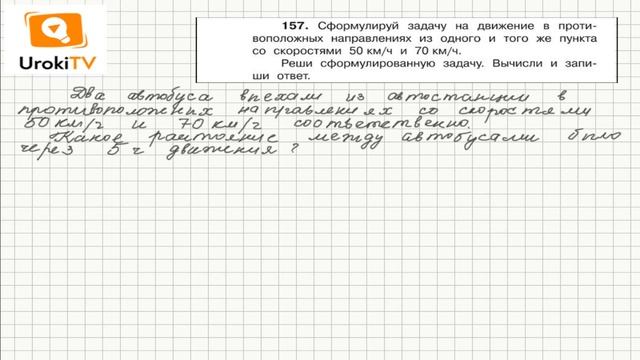 UrokiTV
157. Сформулируй задачу на движение в проти-
воположных направлениях из одного и того же пункта
со скоростями 50 км/ч и 70 км/ч.
Реши сформулированную задачу. Вычисли и запи-
ши ответ.
Два автобуса выехали из автостанции в
противоположних направлениях со скоростями
50 км/ч и 70 км/ч соответственно.
Какое расстояние между автобусами было
через 5 ч движения?